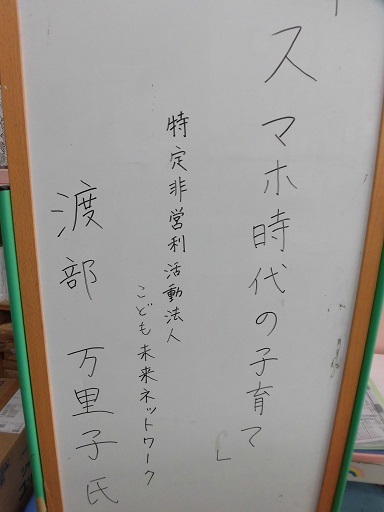 「スマホ時代の子育て」
特定非営利活動法人
こども未来ネットワーク
渡部 万里子氏